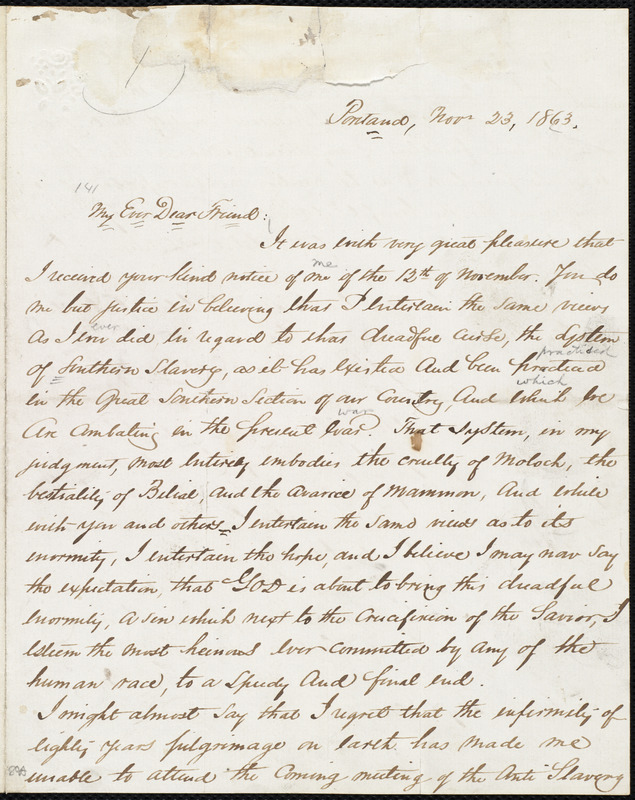 Portland, Novr 23, 1863.
141
My Ever Dear Friend:
It was with very great pleasure that
me
I received your kind notice of me of the 12th of November. You do
me but justice in believing that I entertain the same views
ever
as I ever did in regard to that dreadful curse, the System
practised
of Southern Slavery, as it has existed And been practiced
which
in the Great Southern Section of our Country, And which we
war
Are combating in the present war. That System, in my
judgment, most entirely embodies the cruelty of Moloch, the
bestiality of Belial, and the avarice of Mammon, And while
with you and others I entertain the same views as to its
enormity, I entertain the hope, and I believe I may now say
the expectation, that GOD is about to bring this dreadful
enormity, a sin which next to the Crucifixion of the Savior, I
esteem the most heinous ever committed by any of the
human race, to a Speedy And final end.
I might almost say that I regret that the infirmity of
eighty years pilgrimage on earth has made me
unable to attend the Coming meeting of the Anti Slavery